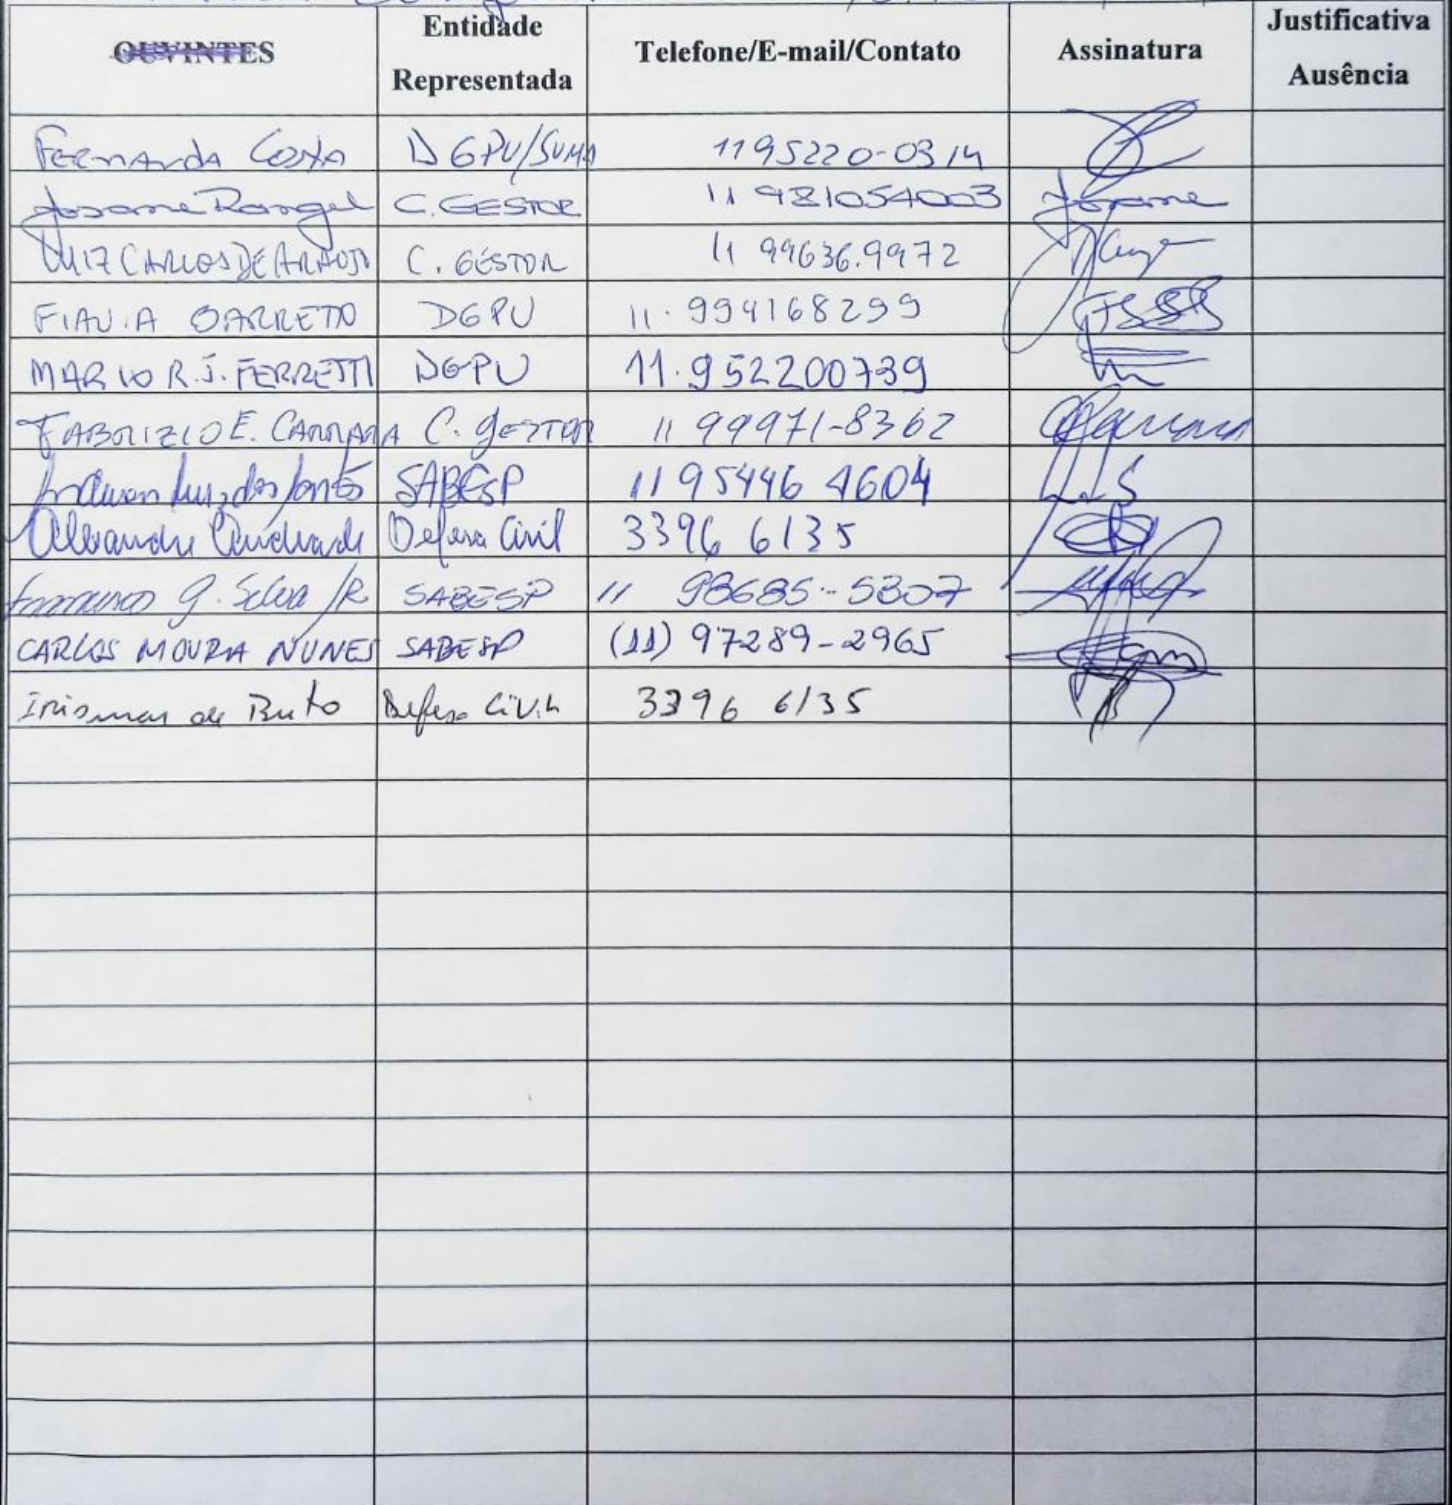 OUVINTES Entidade Representada Telefone/E-mail/Contato Assinatura Justificativa Ausência
Fernanda Costa DGPU/SVMA 1195220-0314
Josane Rangel C. GESTOR 11 981054003 Josane
LUIZ CARLOS DE ARAUJO C. GESTOR 11 99636.9972
FLAVIA BARRETO DGPU 11. 994168299
MARIO R. J. FERRETTI DGPU 11.952200739
FABRIZIO E. CARRARA C. gestor 11 99971-8362
luiz dos Santos SABESP 11 95446 4604
Andrade Defesa Civil 3396 6135
G. Silva JR SABESP 11 98685-5307
CARLOS MOURA NUNES SABESP (11) 97289-2965
Irismar de Brito Defesa Civil 3396 6135